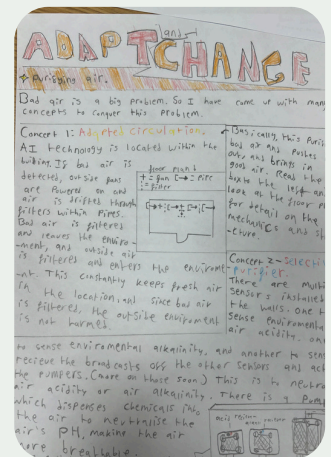 ADAPT and CHANGE
Purifying air.
Bad air is a big problem. So I have come up with many
concepts to conquer this problem.
Concept 1: Adapted circulation.
AI technology is located within the
building. If bad air is
detected, outside fans
are powered on and
air is drifted through
filters within pipes.
Bad air is filtered
and leaves the enviro
-ment, and outside air
is filtered and enters the enviroment
-nt. This constantly keeps fresh air
in the location, and since bad air
is filtered, the outside enviroment
is not harmed.
floor plan 1
+ = fan
= filter
Basically, this purif
bad air and pushes
out, and brings in
good air. Read the
box to the left an
look at the floor p
for detail on the
mechanics and s
-cture.
Concept 2 - Selecti
purifier.
There are multi
sensors installed
the walls. One t
sense enviromenta
air acidity, on
to sense enviromental alkalinity, and another to sen
recieve the broadcasts off the other sensors and act
the pumpers. (more on those soon) This is to neutra
air acidity or air alkalinity. There is a pump
which dispenses chemicals into
the air to neutralise the
air's PH, making the air
more breathable.